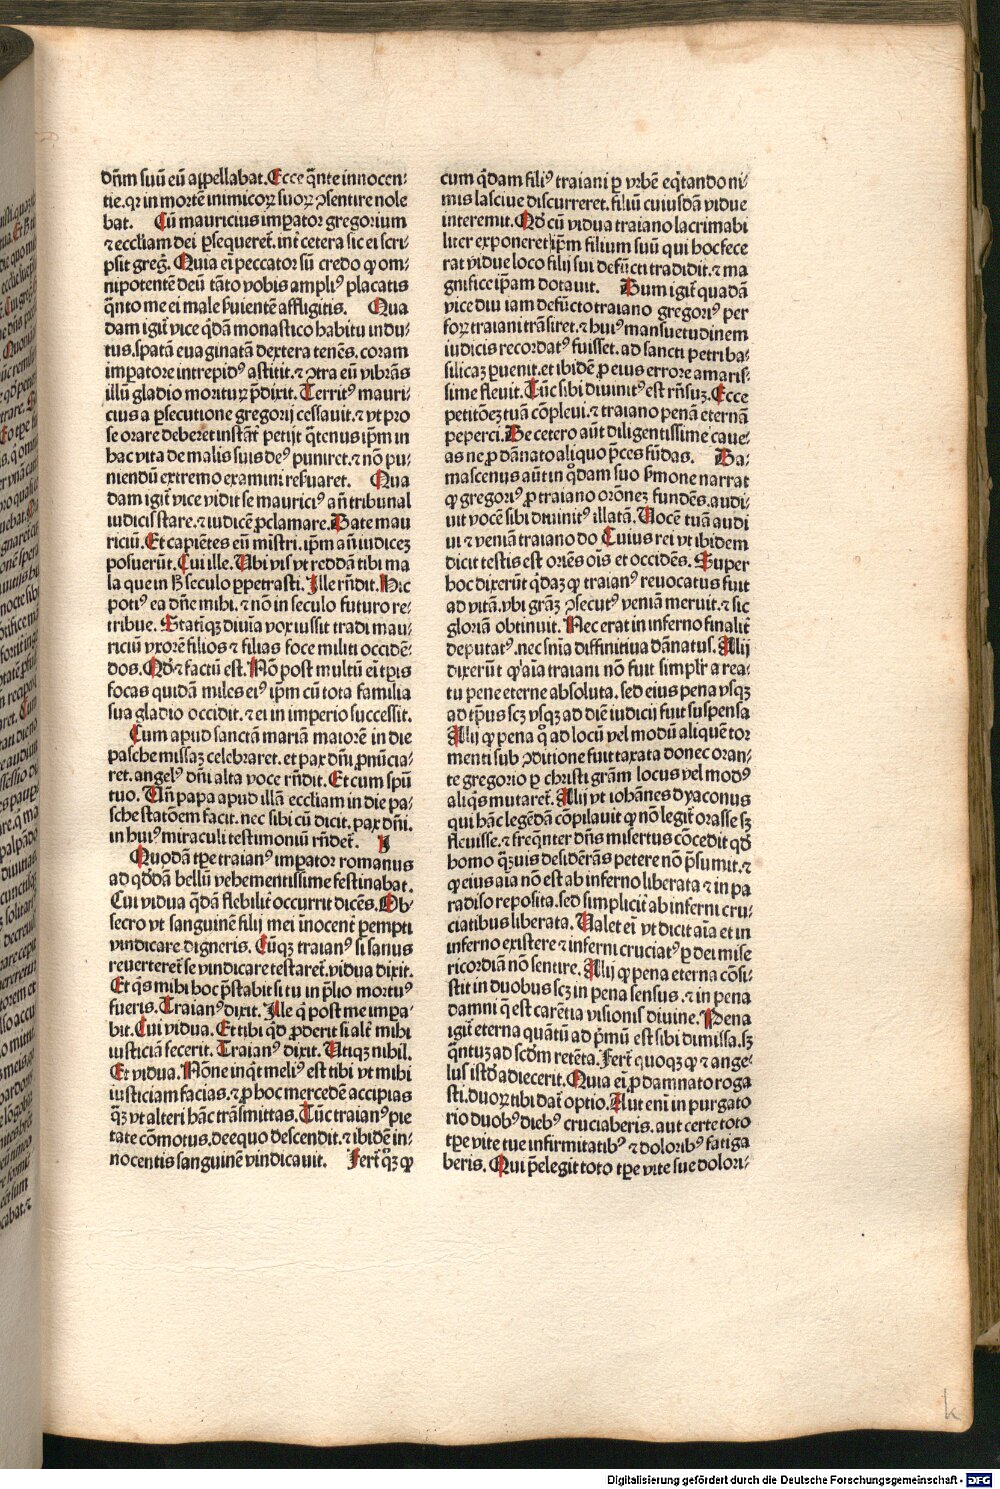 dn̄m suū eū appellabat. Ecce q̄nte innocen-
tie. qr in mortē inimicoꝝ suoꝝ ꝯsentire nole
bat. Cū mauricius imꝑator gregorium
⁊ eccliam dei ꝑsequeret̄. int̄ cetera sic ei scri-
psit greg̃. Quia ei̅ peccator sū credo ꝙ om-
nipotentē deū tāto vobis ampliꝰ placatis
q̄nto me ei male ẜuientē affligitis. Qua
dam igit̄ vice q̄dā monastico habitu indu-
tus. spatā euaginatā dextera tenēs. coram
imꝑatore intrepidꝰ astitit. ⁊ ꝯtra eū vibrās
illū gladio morituꝝ p̄dixit. Territꝰ mauri-
cius a ꝑsecutione gregorij cessauit. ⁊ vt pro
se orare deberet instāt̄ petijt q̄tenus ip̄m in
hac vita de malis suis deꝰ puniret. ⁊ nō pu-
niendū extremo examini reẜuaret. Qua
dam igit̄ vice vidit se mauriciꝰ an̄ tribunal
iudicis stare. ⁊ iudicē ꝓclamare. Date mau
riciū. Et capiētes eū mistri. ip̄m an̄ iudicez
posuerūt. Cui ille. Ubi vis vt reddā tibi ma
la que in h̄ seculo ꝑpetrasti. Ille rn̄dit. Hic
potiꝰ ea dn̄e mihi. ⁊ nō in seculo futuro re-
tribue. Statiqꝫ diuīa vox iussit tradi mau-
riciū vxorē filios ⁊ filias foce militi occidē-
dos. Qd̄ ⁊ factū est. Nō post multū ei̅ tp̄is
focas quidā miles eiꝰ ip̄m cū tota familia
sua gladio occidit. ⁊ ei in imperio successit.
Cum apud sanctā mariā maiorē in die
pasche missaꝫ celebraret. et pax dn̄i ꝓnūcia-
ret. angelꝰ dn̄i alta voce rn̄dit. Et cum spū
tuo. Un̄ papa apud illā eccliam in die pa-
sche statōem facit. nec sibi cū dicit. pax dn̄i.
in huiꝰ miraculi testimoniū rn̄det̄.
Quodā tꝑe traianꝰ imꝑator romanus
ad qd̄dā bellū vehementissime festinabat.
Cui vidua q̄dā flebilit̄ occurrit dicēs. Ob-
secro vt sanguinē filij mei īnocent̄ ꝑempti
vindicare digneris. Cūqꝫ traianꝰ si sanus
reuerteret̄ se vindicare testaret̄. vidua dixit.
Et q̄s mihi hoc p̄stabit si tu in p̄lio mortuꝰ
fueris. Traianꝰ dixit. Ille q̄ post me imꝑa-
bit. Cui vidua. Et tibi qd̄ ꝓderit si alt̄ mihi
iusticiā fecerit. Traianꝰ dixit. Utiqꝫ nihil.
Et vidua. Nōne inq̄t meliꝰ est tibi vt mihi
iusticiam facias. ⁊ ꝓ hoc mercedē accipias
q̄ꝫ vt alteri hāc trāsmittas. Tūc traianꝰ pie
tate cōmotus. de equo descendit. ⁊ ibidē in-
nocentis sanguinē vindicauit. Fert̄ q̊ꝫ ꝙ
cum q̄dam filiꝰ traiani ꝑ vrbē eq̄tando ni-
mis lasciue discurreret. filiū cuiusdā vidue
interemit. Qd̄ cū vidua traiano lacrimabi
liter exponeret ip̄m filium suū qui hoc fece
rat vidue loco filij sui defūcti tradidit. ⁊ ma
gnifice ip̄am dotauit. Dum igit̄ quadā
vice diu iam defūcto traiano gregoriꝰ per
foꝝ traiani trāsiret. ⁊ huiꝰ mansuetudinem
iudicis recordatꝰ fuisset. ad sancti petri ba-
silicaꝫ ꝑuenit. et ibidē ꝓ eius errore amaris-
sime fleuit. Tūc sibi diuinitꝰ est rn̄suꝫ. Ecce
petitōeꝫ tuā cōpleui. ⁊ traiano penā eternā
peperci. De cetero aūt diligentissime caue-
as ne ꝓ dānato aliquo p̄ces fūdas. Da-
mascenus aūt in q̊dam suo ẜmone narrat
ꝙ gregoriꝰ ꝓ traiano orōneꝫ fundēs. audi-
uit vocē sibi diuinitꝰ illatā. Uocē tuā audi
ui ⁊ veniā traiano do Cuius rei vt ibidem
dicit testis est oriēs oīs et occidēs. Super
hoc dixerūt q̄daꝫ ꝙ traianꝰ reuocatus fuit
ad vitā. vbi gr̄aꝫ ꝯsecutꝰ veniā meruit. ⁊ sic
gloriā obtinuit. Nec erat in inferno finalit̄
deputatꝰ. nec snīa diffinitiua dānatus. Alij
dixerūt ꝙ aīa traiani nō fuit simplr̄ a rea-
tu pene eterne absoluta. sed eius pena vsqꝫ
ad tp̄us scꝫ vsqꝫ ad diē iudicij fuit suspensa
Alij ꝙ pena q̊ ad locū vel modū aliquē tor
menti sub ꝯditione fuit taxata donec oran-
te gregorio ꝑ christi gr̄am locus vel modꝰ
aliq̄s mutaret̄. Alij vt iohānes dyaconus
qui hāc legēdā cōpilauit ꝙ nō legit̄ orasse sꝫ
fleuisse. ⁊ freq̄nter dn̄s misertus cōcedit qd̄
homo q̄ꝫuis desiderās petere nō p̄sumit. ⁊
ꝙ eius aīa nō est ab inferno liberata ⁊ in pa
radiso reposita. sed simplicit̄ ab inferni cru-
ciatibus liberata. Ualet ei̅ vt dicit aīa et in
inferno existere ⁊ inferni cruciatꝰ ꝑ dei mise
ricordiā nō sentire. Alij ꝙ pena eterna cōsi-
stit in duobus scꝫ in pena sensus. ⁊ in pena
damni q̄ est carētia visionis diuine. Pena
igit̄ eterna quātū ad p̄mū est sibi dimissa. sꝫ
q̄ntuꝫ ad scd̄m retēta. Fert̄ quoqꝫ ꝙ ⁊ ange-
lus istd̄ adiecerit. Quia ei̅ ꝓ damnato roga
sti. duoꝝ tibi dat̄ optio. Aut eni̅ in purgato
rio duobꝰ diebꝰ cruciaberis. aut certe toto
tꝑe vite tue infirmitatibꝰ ⁊ doloribꝰ fatiga
beris. Qui p̄elegit toto tꝑe vite sue dolori-
k
Digitalisierung gefördert durch die Deutsche Forschungsgemeinschaft - DFG